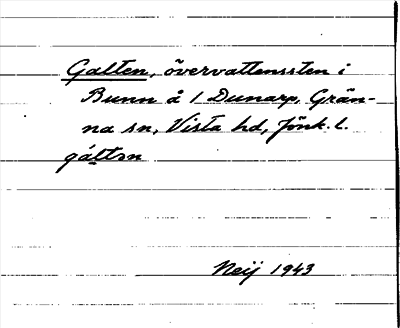 Galten, övervattenssten i
Bunn å / Dunarp, Grän-
na sn, Vista hd, Jönk. l.
gáltən
Neij 1943